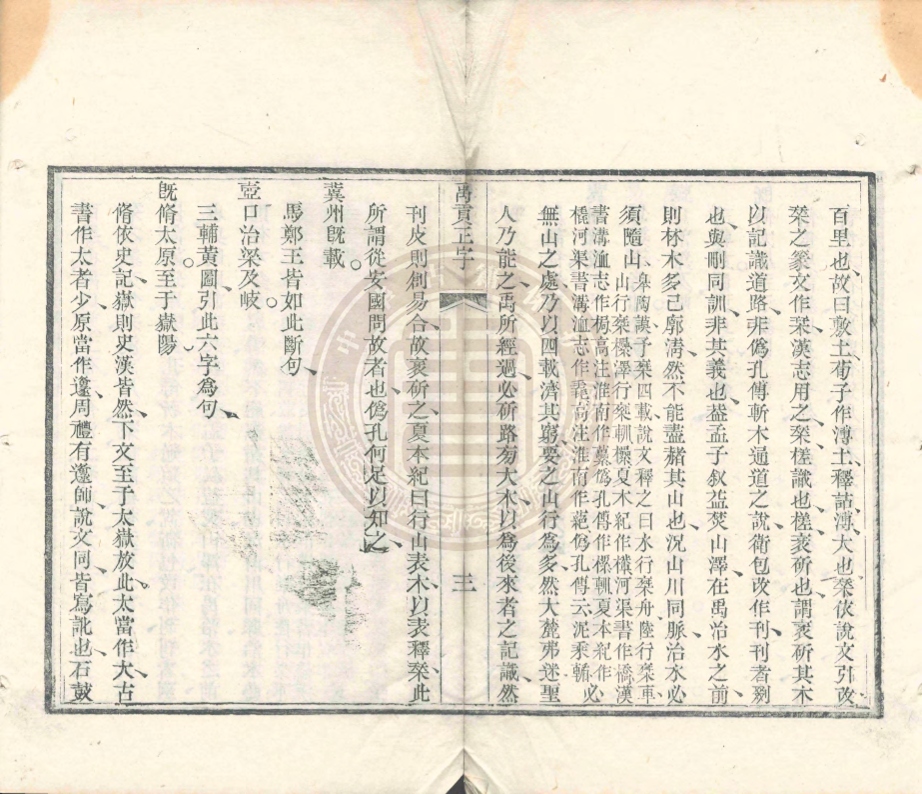 百里也故曰敷土荀子作溥土釋詁溥大也栞依說文引改
栞之篆文作栞漢志用之栞槎識也槎衺斫也謂衺斫其木
以記識道路非僞孔傳斬木通道之說衛包改作刊刊者剟
也與刪同訓非其義也益孟子敘益焚山澤在禹治水之前
則林木多已廓淸然不能盡赭其山也況山川同脈治水必
須隨山
皋陶謨予乘四載說文釋之曰水行乘舟陸行乘車
山行乘欙澤行乘輴欙夏本紀作檋河渠書作橋漢
書溝洫志作梮高注淮南作蔂僞孔傳作樏輴夏本紀作
橇河渠書溝洫志作毳高注淮南作蕝僞孔傳云泥乘輴必
無山之處乃以四載濟其窮要之山行爲多然大麓弗迷聖
人乃能之禹所經過必斫路旁大木以爲後來者之記識然
禹貢正字
三
刊皮則創易合故衺斫之夏本紀曰行山表木以表釋栞此
所謂從安國問故者也僞孔何足以知之
冀州既載
馬鄭王皆如此斷句
壺口治梁及岐
三輔黃圖引此六字爲句
既脩太原至于嶽陽
脩依史記嶽則史漢皆然下文至于太嶽放此太當作大古
書作太者少原當作邍周禮有邍師說文同皆寫訛也石鼓